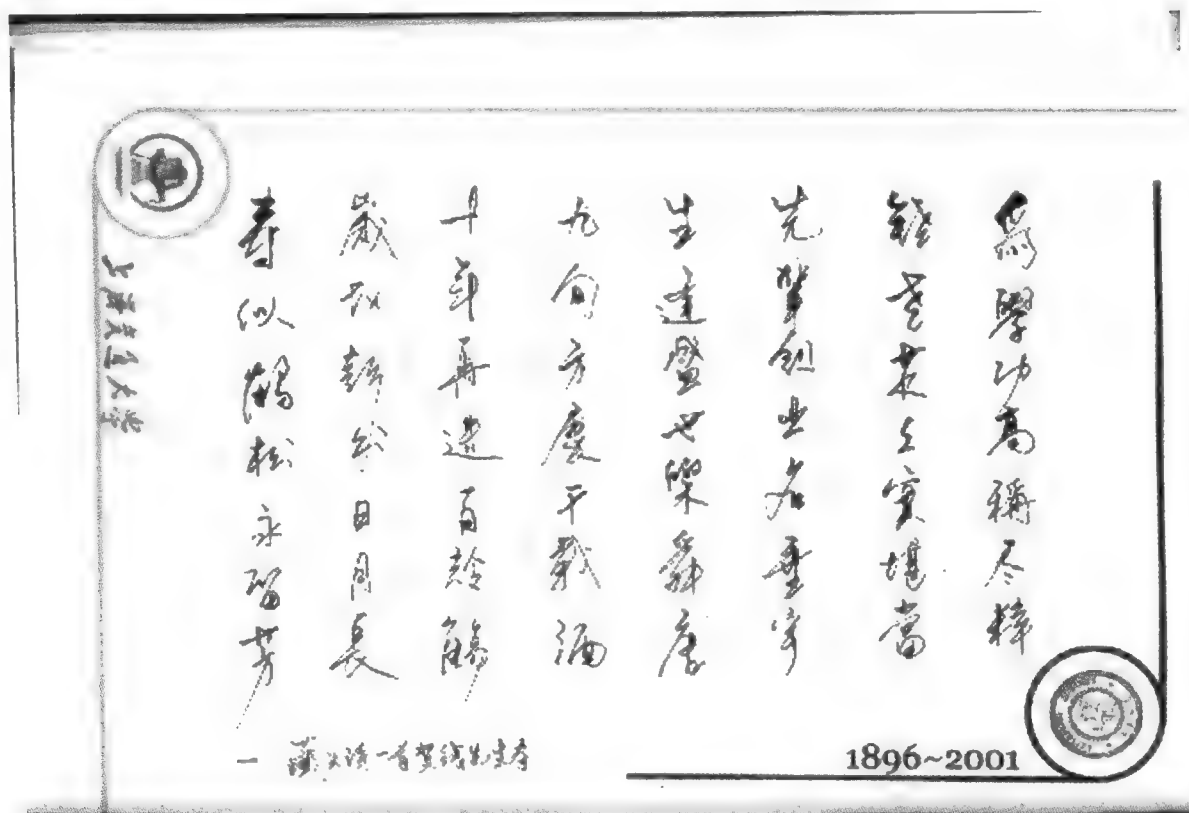 為學功高稱尽粹
錢老 实堪當
先輩創业名垂宇
生逢盛世樂舜唐
九旬方慶千載酒
十年再進百龄觴
歲 日月長
寿似鶴松永留芳
一 藏头诗一首贺钱先生寿
上海交通大学
1896~2001